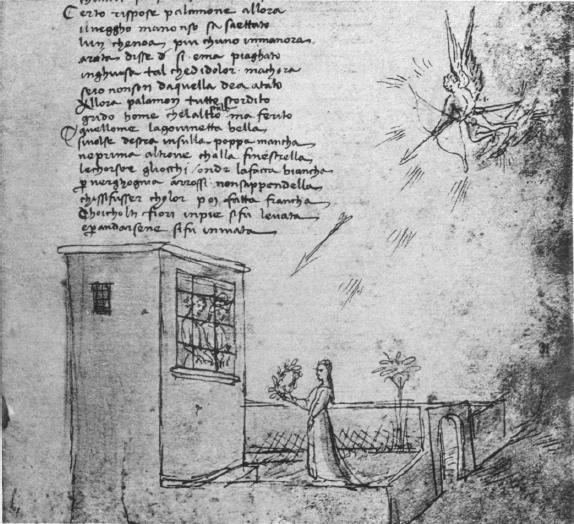 Certo rispose palamone allora
il veggho ma non so sa saettato
lui che noa piu chuno in man ora
arcita disse di si. e ma piaghato
in ghuisa tal che di dolor. machora
se io non son da quella dea atato
Allora palamon tutto stordito
grido home che laltro ma ferito
A quellome la govinetta bella
si volse destra in sulla poppa mancha
ne prima altrove challa finestrella
le chorsor gliocchi / onde la faccia biancha
per verghogna arrossi. non sappendella
chi si fusser cholor poi fatta francha
cho cholti fiori in pie si fu levata
e per andarsene si fu inviata